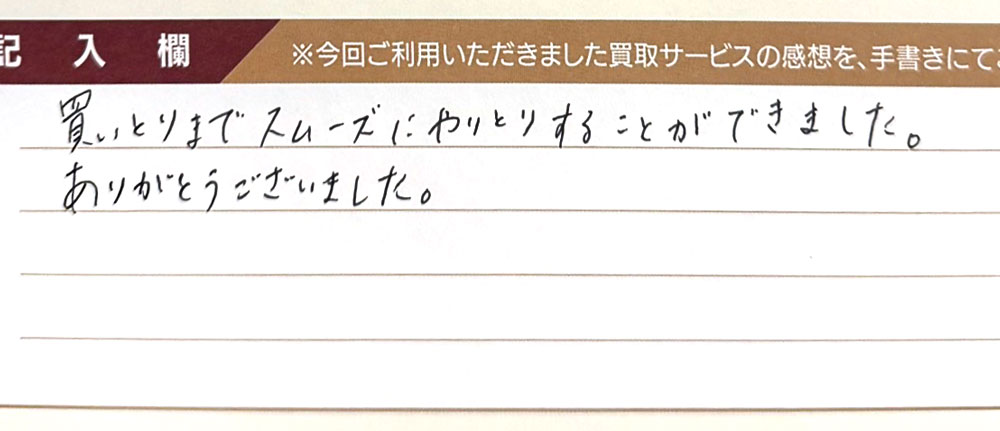 記入欄
※今回ご利用いただきました買取サービスの感想を、手書きにて
買いとりまでスムーズにやりとりすることができました。
ありがとうございました。